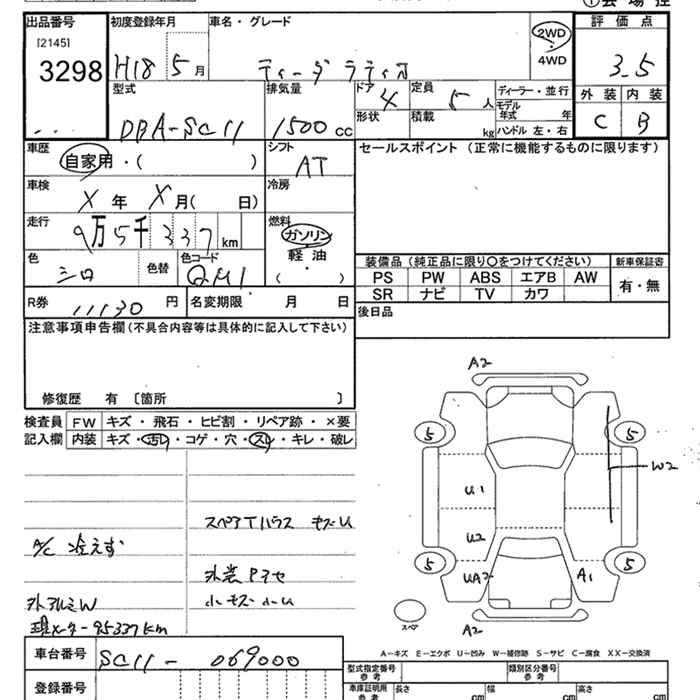 ①会場控
出品番号 初度登録年月 車名・グレード 評価点
[2145]
3298 H18 5月 ティーダラティオ 2WD・4WD 3.5
型式 排気量 ドア 4 定員 5人 ディーラー・並行 外装 内装
DBA-SC11 1500cc 形状 積載 kg モデル年式 年 C B
ハンドル 左・右
車歴 自家用・( ) シフト AT セールスポイント (正常に機能するものに限ります)
車検 X年 X月( 日) 冷房
走行 9万5千337km 燃料 ガソリン・軽油・( )
色 シロ 色替 色コード QM1 装備品 (純正品に限り○をつけてください) 新車保証書
PS PW ABS エアB AW 有・無
SR ナビ TV カワ
R券 11130円 名変期限 月 日 後日品
注意事項申告欄 (不具合内容等は具体的に記入して下さい)
修復歴 有 〔箇所 〕
検査員記入欄 FW キズ・飛石・ヒビ割・リペア跡・×要
内装 キズ・汚レ・コゲ・穴・スレ・キレ・破レ
A2
5 5
W2
U1
U2
5 5
UA2 A1
スペア A2
スペアTハウス キズU
A/C 冷えず
外装Pヨセ
外アルミW 小キズ・小U
現メーター95337km
A-キズ E-エクボ U-凹み W-補修跡 S-サビ C-腐食 XX-交換済
車台番号 SC11-069000
登録番号
型式指定番号参考 類別区分番号参考
車庫証明用参考 長さ cm 幅 cm 高さ cm